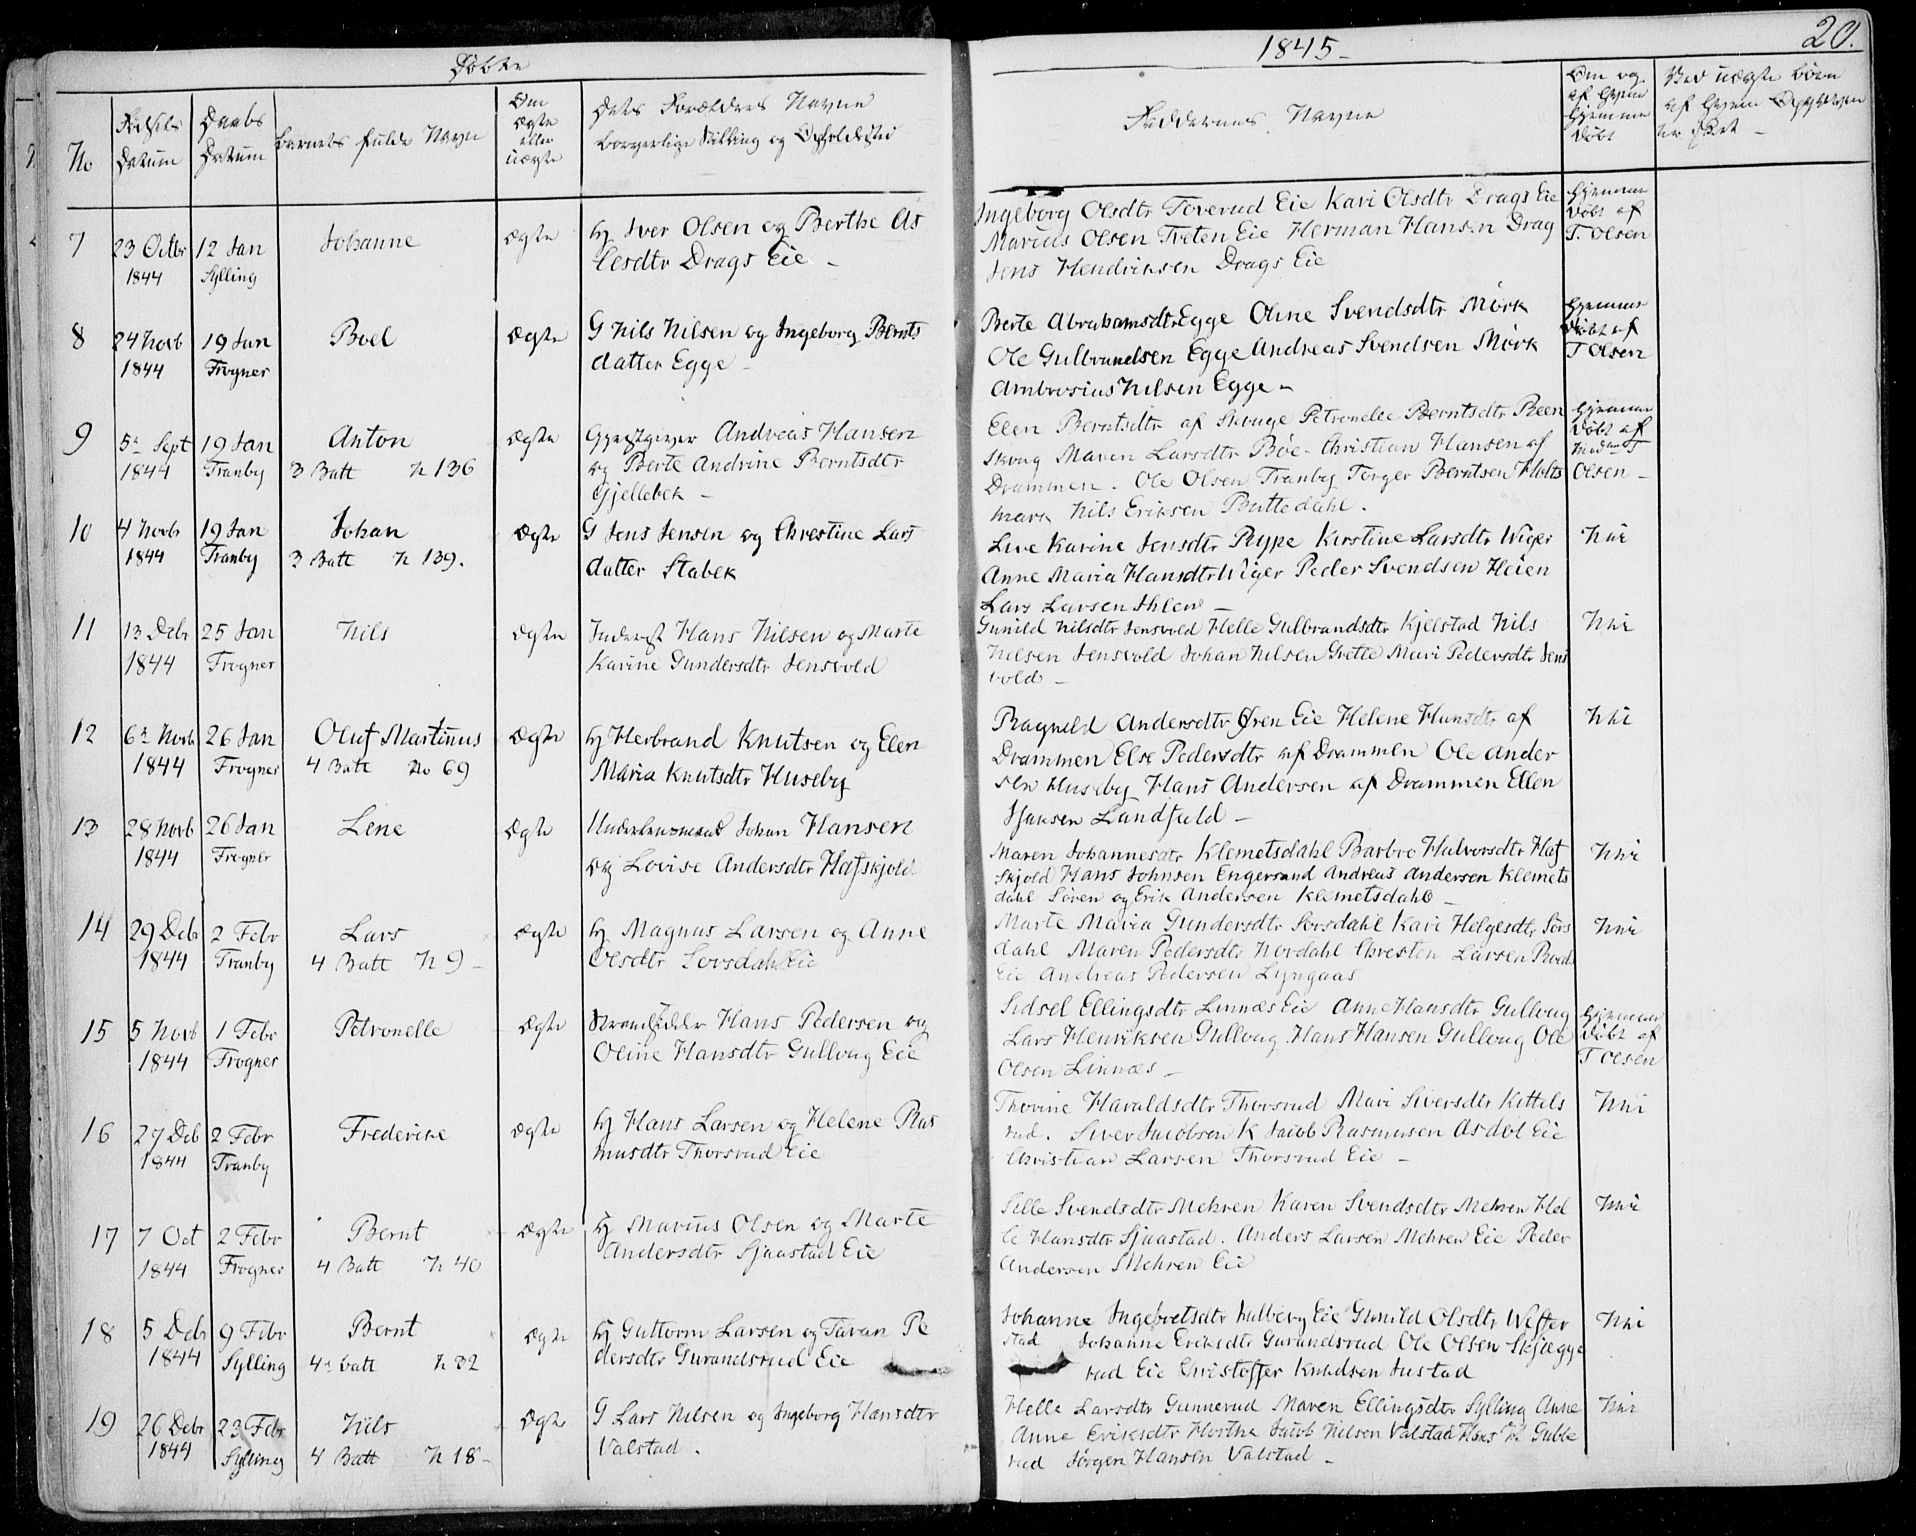 Døbte
1845 -
20.
No
Fødsels Datum
Daabs Datum
Barnets fulde Navn
Om ægte eller uægte
Dets Forældres Navne
borgerlige Stilling og Opholdssted
Faddernes Navne
Om og af Hvem hjemme døbt
Ved uægte Børn
af Hvem Opgivelsen
er skeet -
7
23 Octbr 1844
12 Jan Sylling
Johanne
ægte
Hj Iver Olsen og Berthe As
lesdtr Drags Eie -
Ingeborg Olsdtr Toverud Eie Kari Olsdtr Drags Eie
Marius Olsen Treten Eie Herman Hansen Drag
Jens Hendriksen Drags Eie
Hjemme døbt af T. Olsen
8
24 Novb 1844
19 Jan Frogner
Boel
ægte
G Nils Nilsen og Ingeborg Bernts
datter Egge -
Berte Abrahamsdtr Egge Oline Svendsdtr Mørk
Ole Gulbrandsen Egge Andreas Svendsen Mørk
Ambrosius Nilsen Egge -
Hjemme døbt af T Olsen
9
5te Sept 1844
19 Jan Tranby
Anton
3 Batt N 136
ægte
Gjestgiver Andreas Hansen
og Berte Andrine Berntsdtr
Gjellebek -
Elen Berntsdtr af Skouge Petronelle Berntsdtr Reen
Skoug Maren Larsdtr Bøe - Christian Hansen af
Drammen. Ole Olsen Tranby Torger Berntsen Holts
mark Nils Eriksen Buttedahl.
Hjemme døbt af Olsen -
10
4 Novb 1844
19 Jan Tranby
Johan
3 Batt N 139.
ægte
G Jens Jensen og Christine Lars
datter Stabek
Live Karine Jensdtr Rype Kirstine Larsdtr Wiger
Anne Maria Hansdtr Wiger Peder Svendsen Heien
Lars Larsen Ihlen -
Nei
11
13 Debr 1844
25 Jan Frogner
Nils
ægte
Inderst Hans Nilsen og Marte
Karine Gundersdtr Jensvold
Gunild Nilsdtr Jensvold Helle Gulbrandsdtr Kjelstad Nils
Nielsen Jensvold Johan Nilsen Grette Mari Pedersdtr Jens
vold -
Nei
12
6te Novb 1844
26 Jan Frogner
Oluf Martinus
4 Batt No 69
ægte
Hj Herbrand Knutsen og Elen
Maria Knutsdtr Huseby
Ragnild Andersdtr Øren Eie Helene Hansdtr af
Drammen Else Pedersdtr af Drammen Ole Ander
sen Huseby Hans Andersen af Drammen Ellen
Hansen Landfald -
Nei
13
28 Novb 1844
26 Jan Frogner
Lene
ægte
Underlensmand Johan Hansen
og Lovise Andersdtr Hafskjold
Maren Johannesdtr Klemetsdahl Barbro Halvorsdtr Haf
skjold Hans Johnsen Engersand Andreas Andersen Klemets
dahl Søren og Erik Andersen Klemetsdahl -
Nei
14
29 Debr 1844
2 Febr Tranby
Lars
4 Batt N 9 -
ægte
Hj Magnus Larsen og Anne
Olsdtr Sorsdahl Eie
Marte Maria Gundersdtr Sorsdahl Kari Helgesdtr Sors
dahl Maren Pedersdtr Nordahl Christen Larsen Rød
Eie Andreas Pedersen Lyngaas
Nei
15
5 Novb 1844
1 Febr Frogner
Petronelle
ægte
Strandsidder Hans Pedersen og
Oline Hansdtr Gulloug Eie
Sidsel Ellingsdtr Linnæs Eie Anne Hansdtr Gulloug
Lars Henriksen Gulloug Hans Hansen Gulloug Ole
Olsen Linnæs -
Hjemme døbt af T Olsen
16
27 Deb 1844
2 Febr Tranby
Frederike
ægte
Hj Hans Larsen og Helene Ras
musdtr Thorsrud Eie
Thorine Haraldsdtr Thorsrud Mari Siversdtr Kittels
rud. Siver Jacobsen K Jacob Rasmusen Asdøl Eie
Christian Larsen Thorsrud Eie -
Nei
17
7 Oct 1844
2 Febr Frogner
Bernt
4 Batt N 40
ægte
Hj Marius Olsen og Marte
Andersdtr Sjaastad Eie
Sille Svendsdtr Mehren Karen Svendsdtr Mehren Hel
le Hansdtr Sjaastad. Anders Larsen Mehren Eie Peder
Andersen Mehren Eie
Nei
18
5 Debr 1844
9 Febr Sylling
Bernt
4de batt N 32
ægte
Hj Guttorm Larsen og Taran Pe
dersdtr Gurandsrud Eie
Johanne Ingebretsdtr Gulberg Eie Gunild Olsdtr Wefter
stad Johanne Eriksdtr Gurandsrud Ole Olsen Skjægge
rud Eie Christoffer Knudsen Justad
Nei
19
26 Debr 1844
23 Febr Sylling
Nils
4 Batt N 18 -
ægte
G Lars Nilsen og Ingeborg Hansdtr
Valstad.
Helle Larsdtr Gunnerud Maren Ellingsdtr Sylling Anne
Anne Eriksdtr Hørthe Jacob Nilsen Valstad Hans N Gubbe
rud Jørgen Hansen Valstad -
Nei